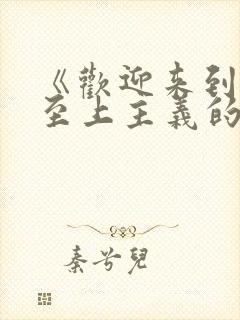 《歡迎来到
至上主義的
秦兮兒